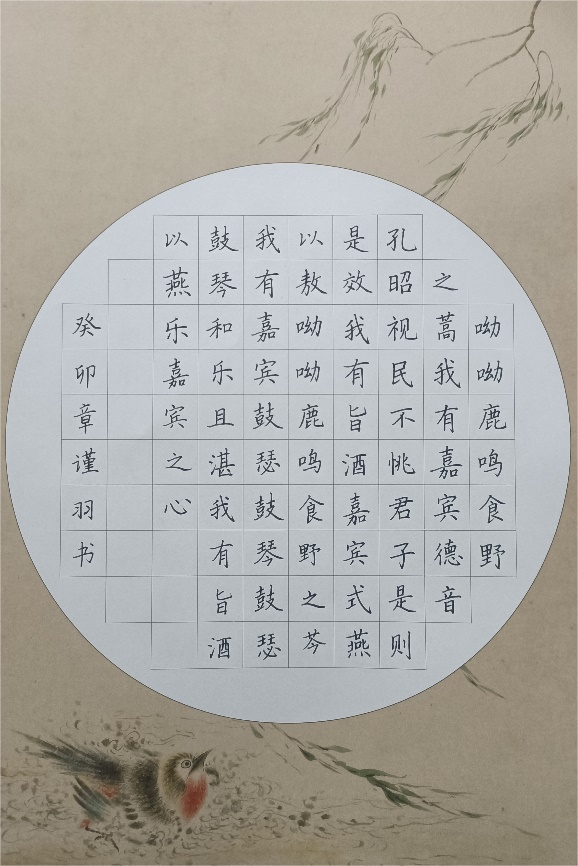 呦呦鹿鸣食野
之蒿我有嘉宾德音
孔昭视民不恌君子是则
是效我有旨酒嘉宾式燕
以敖呦呦鹿鸣食野之芩
我有嘉宾鼓瑟鼓琴鼓瑟
鼓琴和乐且湛我有旨酒
以燕乐嘉宾之心
癸卯章谨羽书